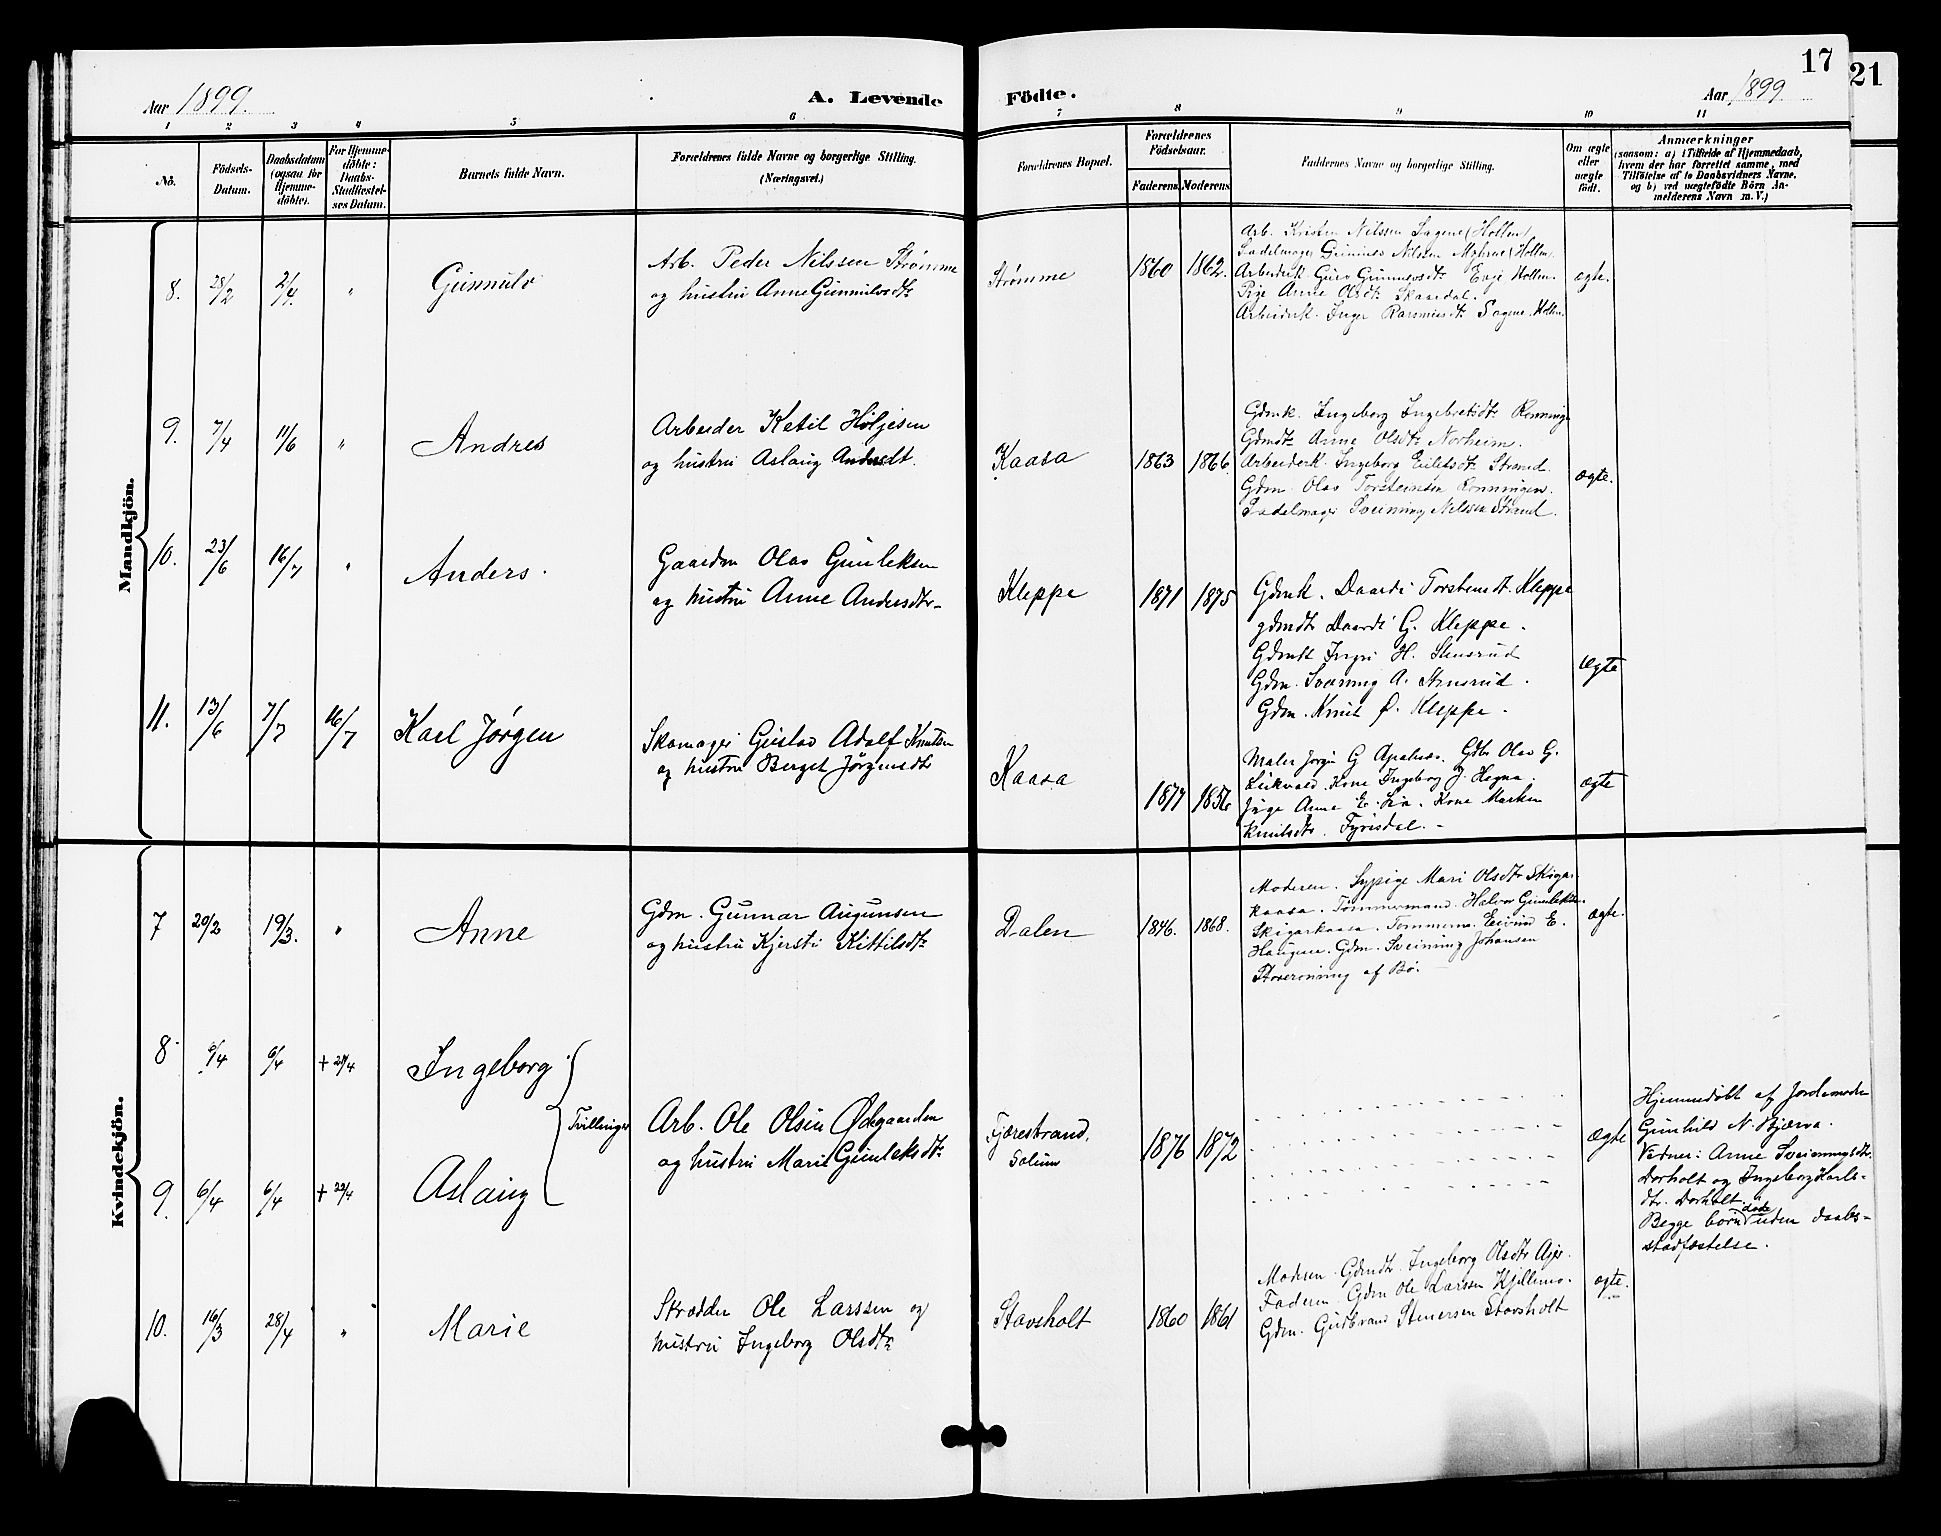 17
21
Aar 1899.
A. Levende Födte.
Aar 1899
1 2 3 4 5 6 7 8 9 10 11
No.
Födsels-Datum.
Daabsdatum (ogsaa for Hjemmedöbte).
For Hjemmedöbte: Daabs-Stadfæstelses Datum.
Barnets fulde Navn.
Forældrenes fulde Navne og borgerlige Stilling. (Næringsvei.)
Forældrenes Bopæl.
Forældrenes Födselsaar.
Faderens. Moderens.
Faddernes Navne og borgerlige Stilling.
Om ægte eller uægte födt.
Anmærkninger
(saasom: a) i Tilfælde af Hjemmedaab,
hvem der har forrettet samme, med
Tilföielse af to Daabsvidners Navne,
og b) ved uægtefödte Börn An-
melderens Navn m. V.)
Mandkjön.
8. 28/2 2/4 " Gunnulv
Arb. Peder Nilssen Strømme
og hustru Anne Gunnulvsdtr
Strømme 1860 1862.
Arb. Kristen Nilssen Sagene (Hollen)
Sadelmager Gunnius Nilssen Myhrene (Hollen)
Arbeiderk. Guro Gunnulvsdtr Eeje Hollen.
Pige Anne Olsdtr Skaardal.
Arbeiderk. Inger Rasmusdtr Sagene. Hollen.
ægte.
9. 7/4 11/6 " Andres
Arbeider Ketil Høljesen
og hustru Aslaug Andersdt.
Kaasa 1863 1866.
Gdmk. Ingeborg Ingebretsdtr Rønninge
Gdmdtr Anne Olsdtr Norheim.
Arbeiderk. Ingeborg Eilefsdtr Strand.
Gdm. Olav Torsteinsen Rønningen.
Sadelmager Sveinung Nilssen Strand.
ægte.
10. 23/6 16/7 " Anders.
Gaardm Olav Gunleksen
og hustru Anne Andersdtr.
Kleppe 1871 1875
Gdmk. Daardi Torsteinsdt. Kleppe
gdmdtr Daardi G. Kleppe.
Gdmk Ingri H. Stensrud
Gdm. Sveinung A. Stensrud.
Gdm. Knut Ø. Kleppe.
ægte
11. 13/6 7/7 16/7 Karl Jørgen
Skomager Gustav Adolf Knutsen
og hustru Berget Jörgensdtr
Kaasa 1877 1856
Maler Jørgen G. Gdbr Olav G.
Kone Ingeborg J. Hegna.
Pige Anne E. Lia. Kone Marken
Knutsdtr. Fyrisdal.
ægte
Kvindekjön.
7 20/2 19/3. " Anne
Gdm. Gunnar Augunsen
og hustru Kjersti Kittilsdtr
Dalen 1846. 1868.
Moderen. Sypige Mari Olsdtr Skigar-
kaasa. Tømmermand Halvor Gunleksen
Skigarkaasa. Tømmerm. Eivind E.
Haugene. Gdm. Sveinung Johansen
af Bø.
ægte.
8 6/4 6/4 + 21/4 Ingeborg.
Tvillinger
Arb. Ole Olsen Ødegaarden
og hustru Marie Gunleksdtr
Fjærestrand, Solum
1876 1872
ægte
9. 6/4 6/4 + 22/4 Aslaug
Hjemmedøbt af Jordemoder
Gunhild N. Bjerva.
Vidner: Anne Sveinungsdtr.
Dorholt og Ingeborg Karls-
dtr. Dorholt.
Begge börn døde uden daabs-
stadfæstelse.
10. 16/3 28/4 " Marie
Skrædder Ole Larssen og
hustru Ingeborg Olsdtr
Stavsholt 1860 1861
Moderen. Gdmdtr. Ingeborg Olsdtr
Faderen. Gdm Ole Larssen
Gdm. Gudbrand Stenersen Stavsholt
ægte.